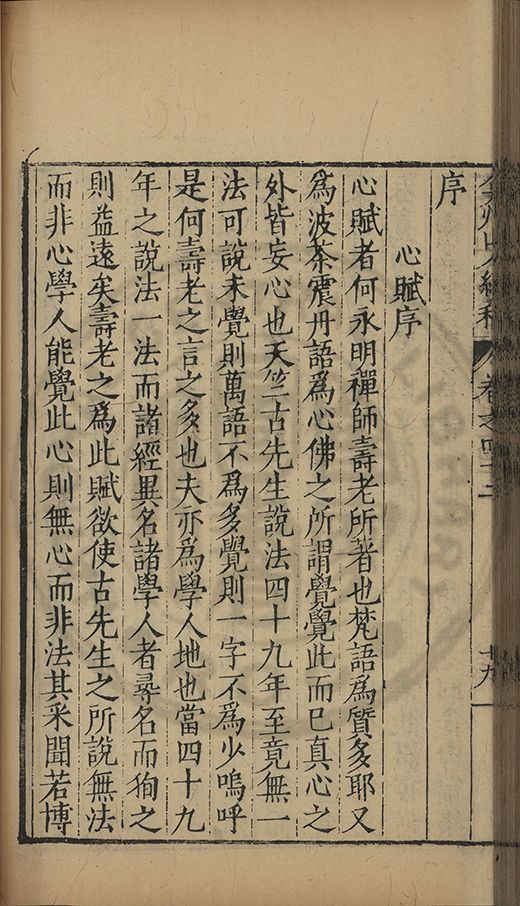 卷之四十二
十九
序
心賦序
心賦者何永明禪師壽老所著也梵語為質多耶又
為波茶震丹語為心佛之所謂覺覺此而已真心之
外皆妄心也天竺古先生說法四十九年至竟無一
法可說未覺則萬語不為多覺則一字不為少嗚呼
是何壽老之言之多也夫亦為學人地也當四十九
年之說法一法而諸經異名諸學人者尋名而狥之
則益遠矣壽老之為此賦欲使古先生之所說無法
而非心學人能覺此心則無心而非法其采聞若博